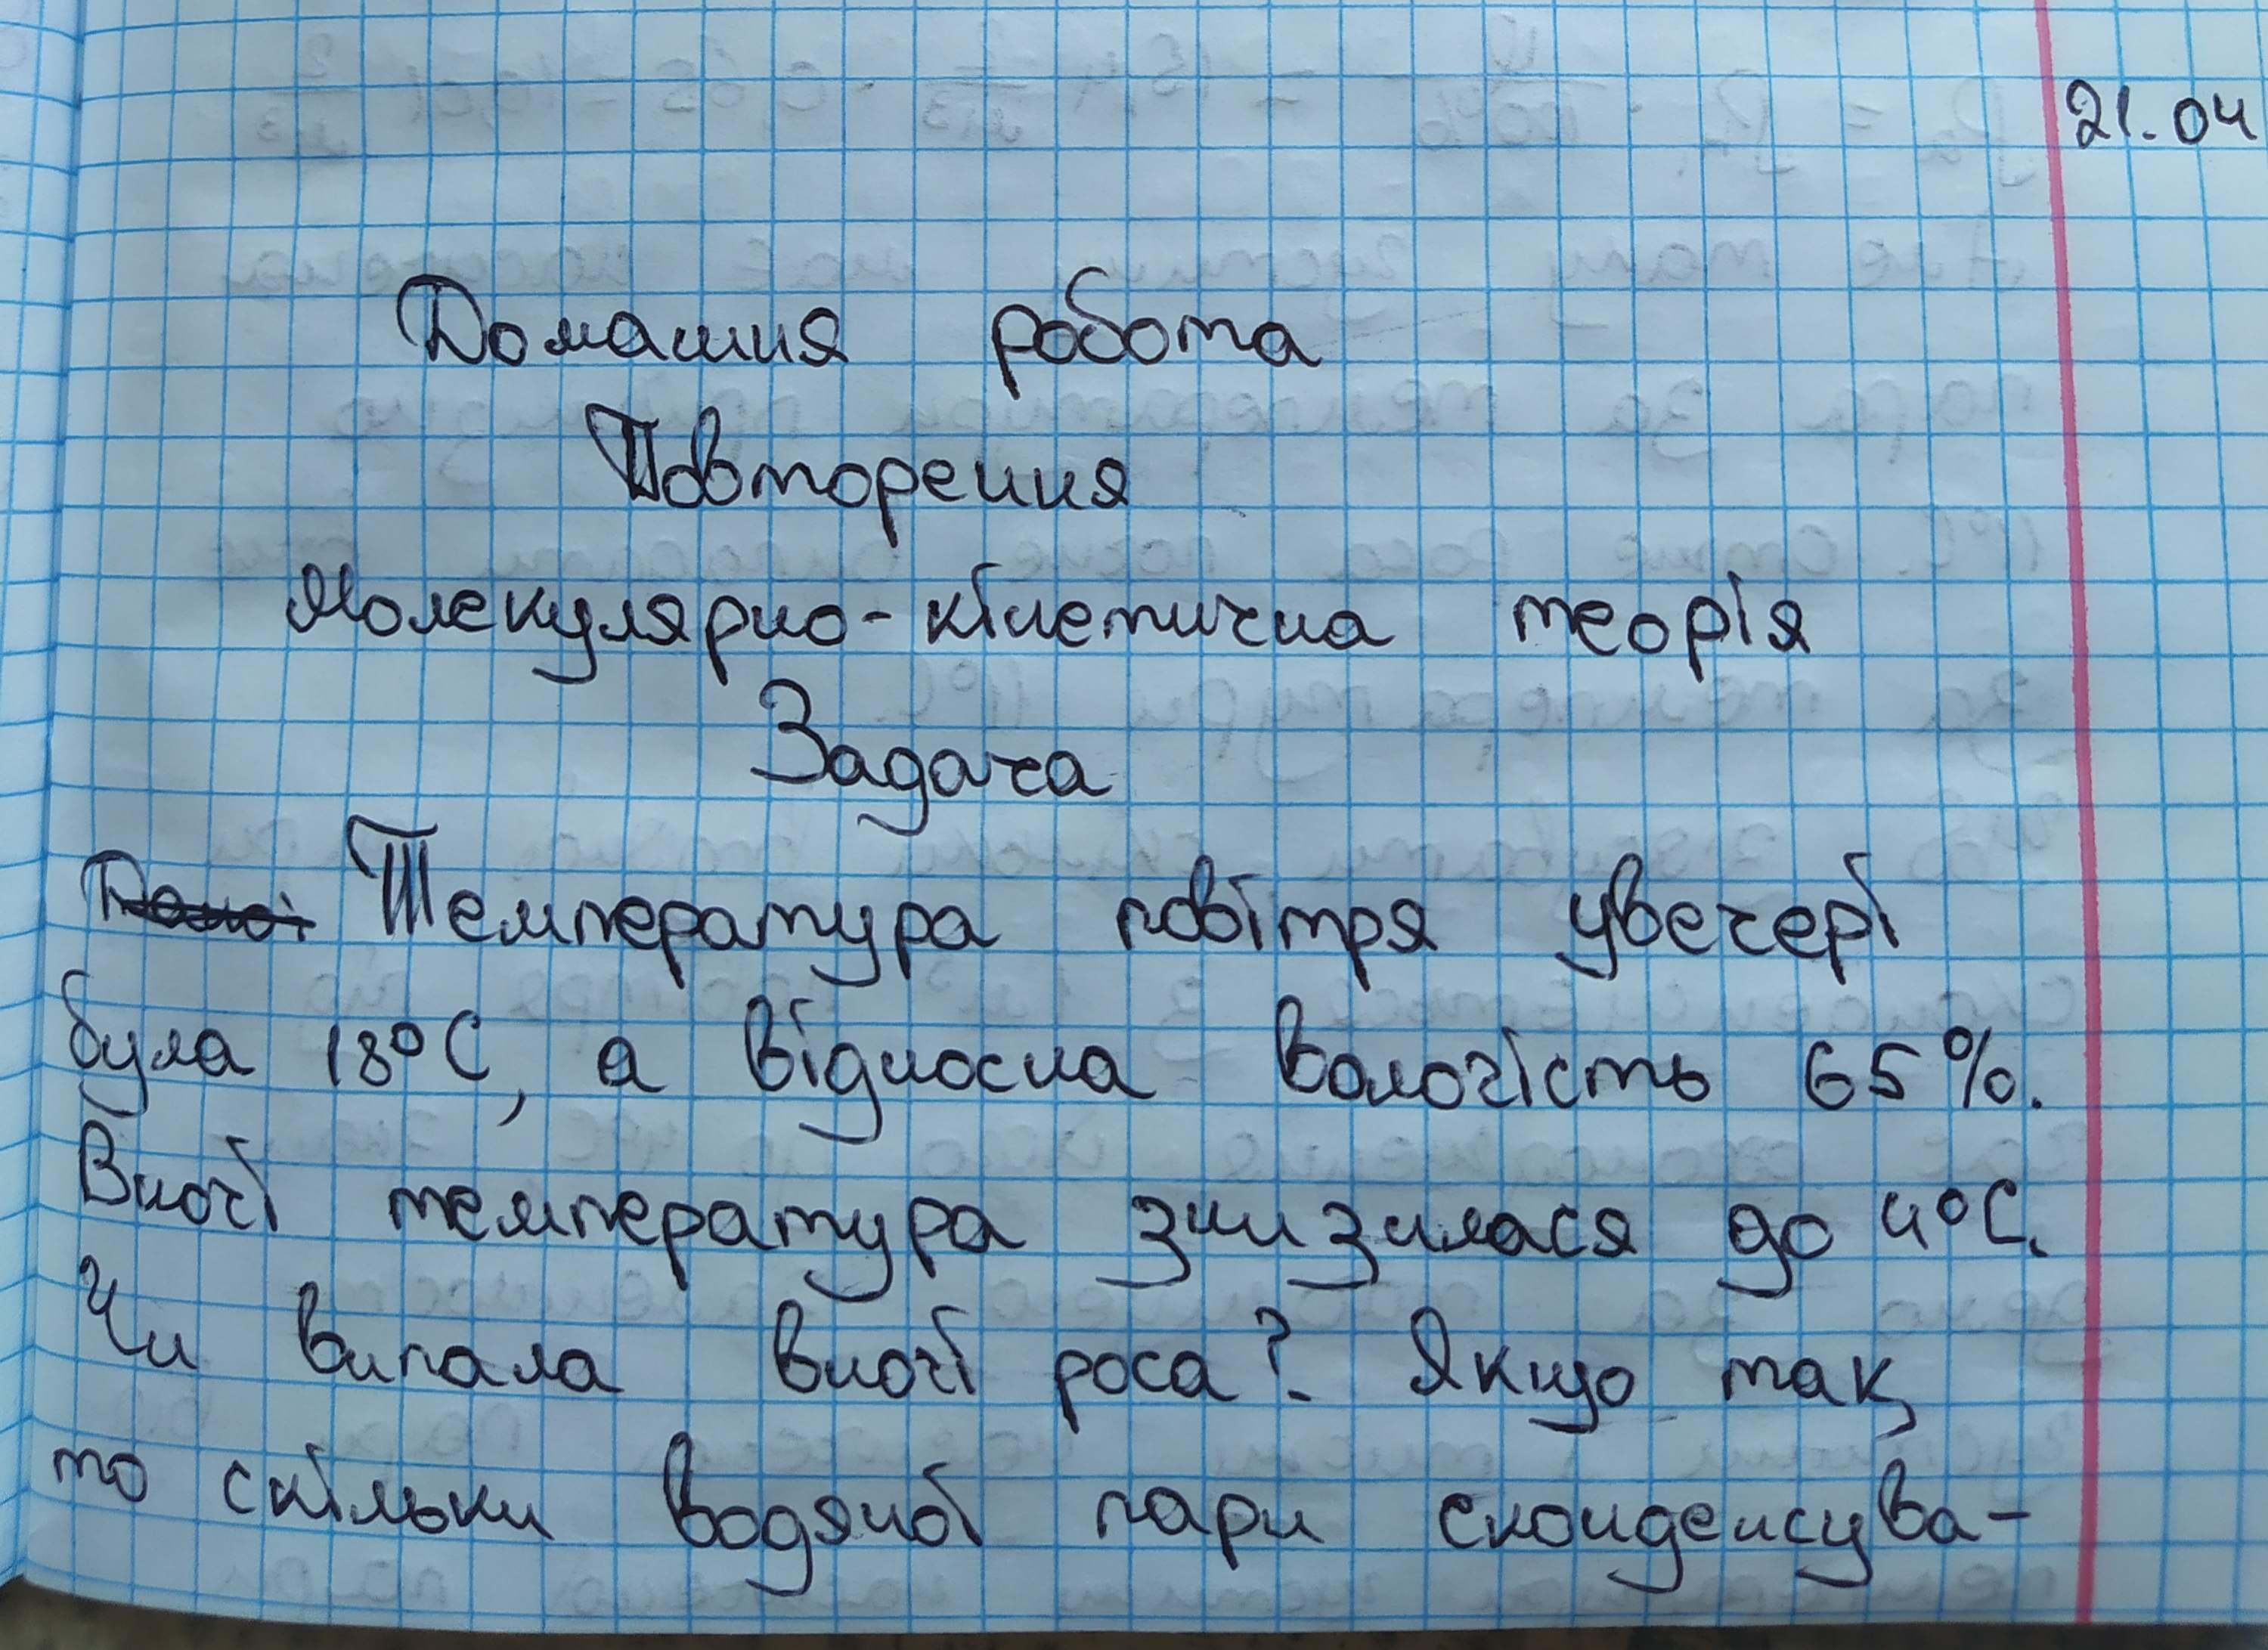 21.04
Домашня робота
Повторення
Молекулярно-кінетична теорія
Задача
Температура повітря увечері
була 18°C, а відносна вологість 65%.
Вночі температура знизилася до 4°C.
Чи випала вночі роса? Якщо так,
то скільки водяної пари сконденсува-